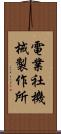 電業社機
械製作所